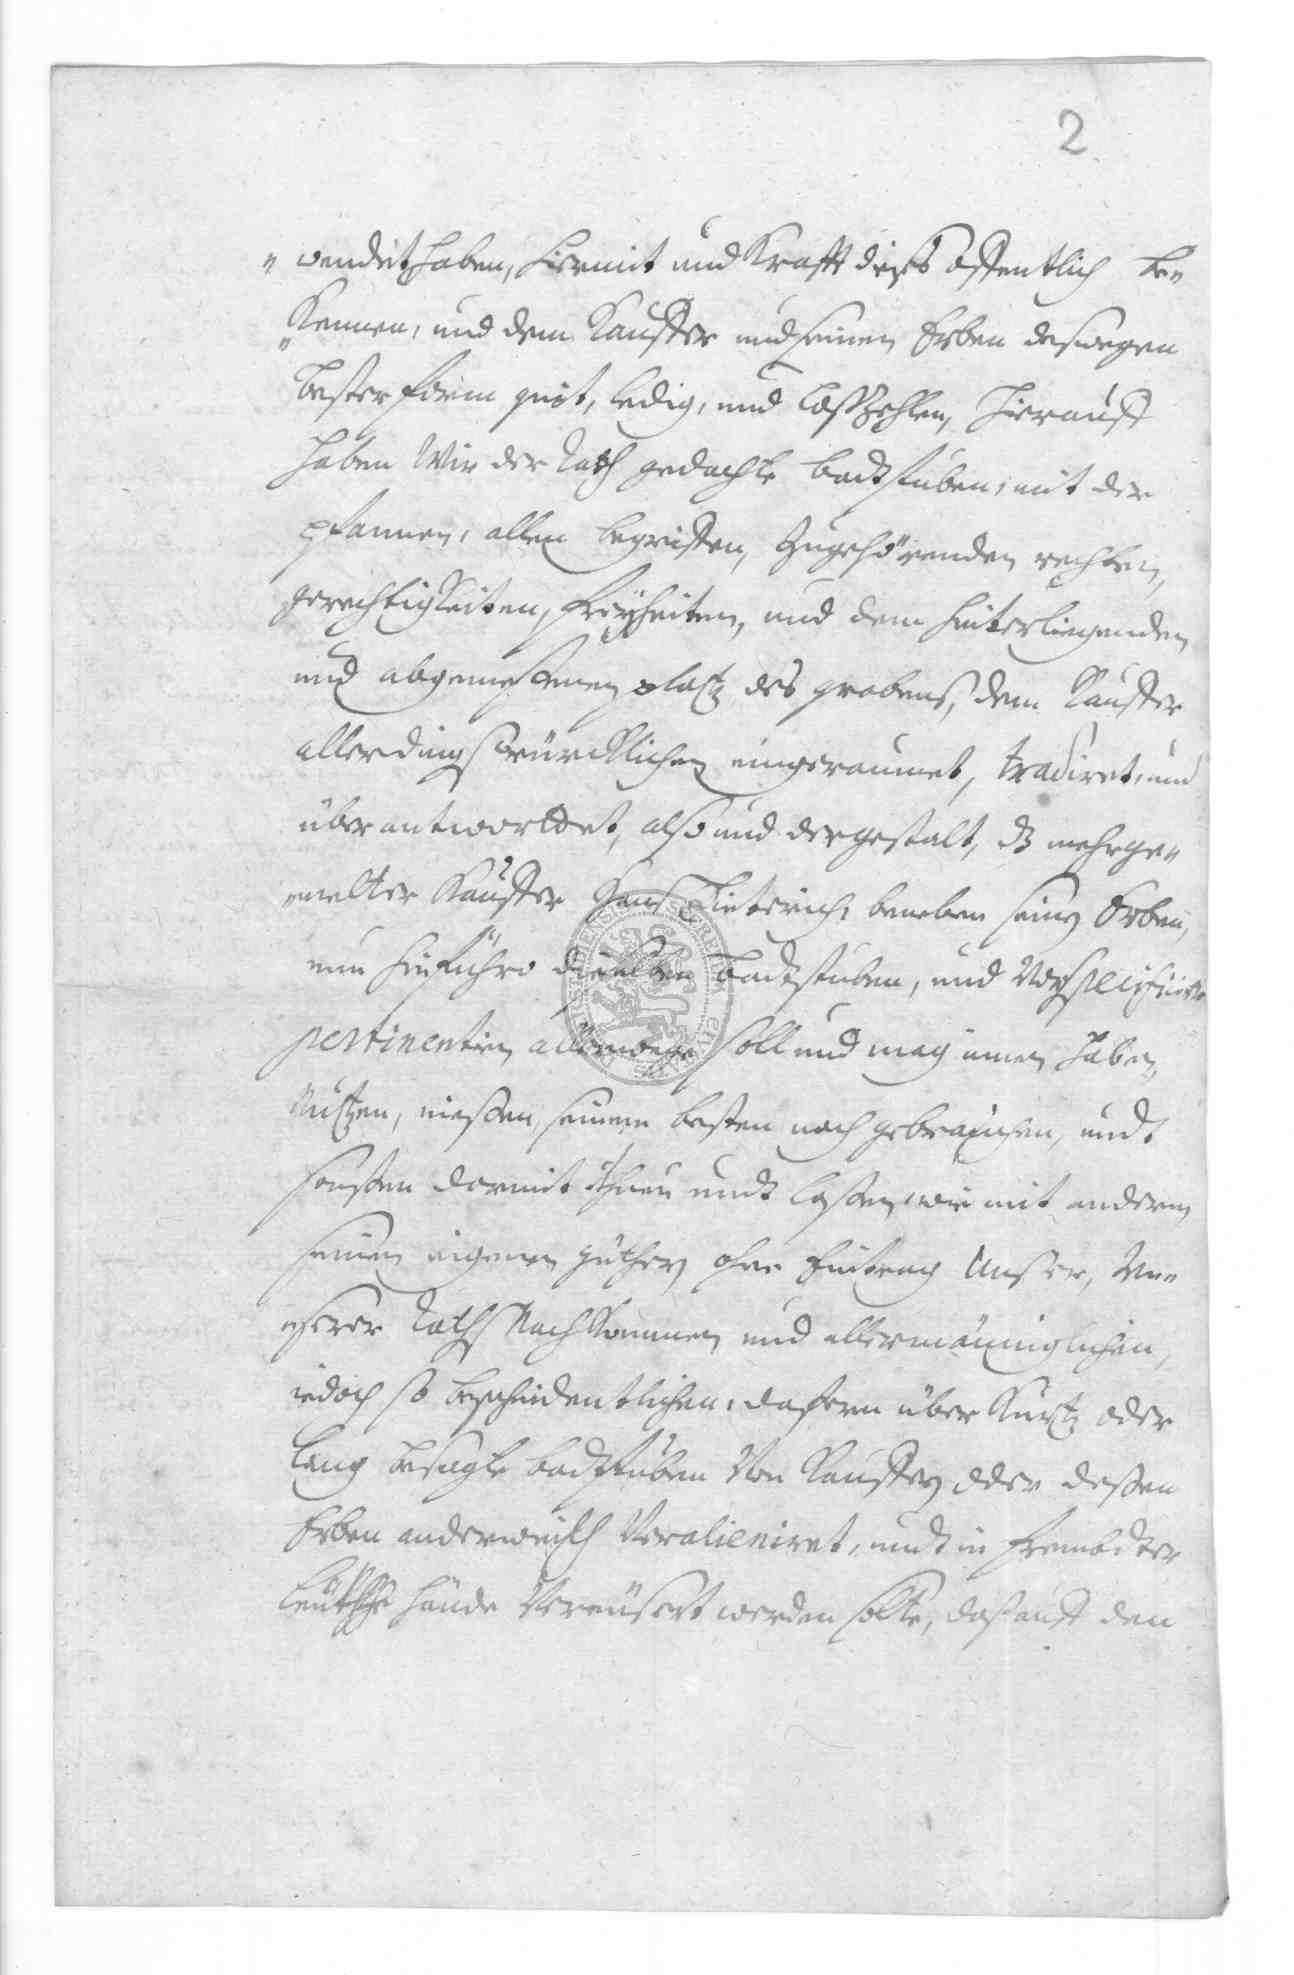 2
„ wendet haben, hiermit und Krafft dieses offentlich be„
„Kennen, und dem Kauffer und seinen Erben deswegen
bester form quit, ledig, und loßzehlen, Hierauff
haben Wir der Rath gedachte badtstuben, mit der
pfannen, allen begriffen, Zugehörenden rechten,
gerechtigkeiten, freyheiten, und dem hinterliegenden
und abgemeßenen platz des grabens, dem Kauffer
allerdings würcklichen eingeraumet, tradiret, und
überantworttet, also und dergestalt, dz mehrge„
„melter Kauffer Hans Dieterich, beneben seinen Erben,
nun hinführo dieselben badtstuben, und Vorspecificirte
pertinentien, allerwege soll und mag innen haben,
Nutzen, nießen, seinem besten nach gebrauchen, undt
sonsten darmit thuen undt laßen, wie mit anderen
seinen eigenen güthern ohne Eintrag Unser, Un„
„serer Raths Nachkommen und allermänniglichen,
iedoch so bescheidentlichen, dafern über Kurtz oder
lang besagte badtstuben Von Kauffern oder deßen
Erben anderweith Veralieniret, undt in frembdter
Leuthe hände Vereusert werden solte, daß auff den